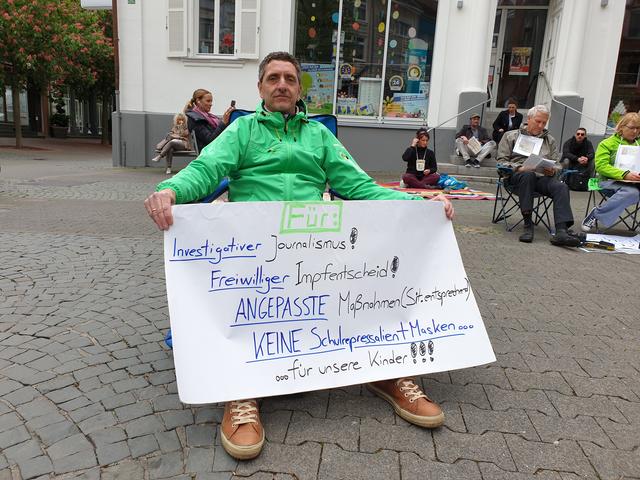 Für:
Investigativer Journalismus!
Freiwilliger Impfentscheid!
ANGEPASSTE Maßnahmen (Sit.entsprechend)
KEINE Schulrepressalien + Masken...
...für unsere Kinder!!!